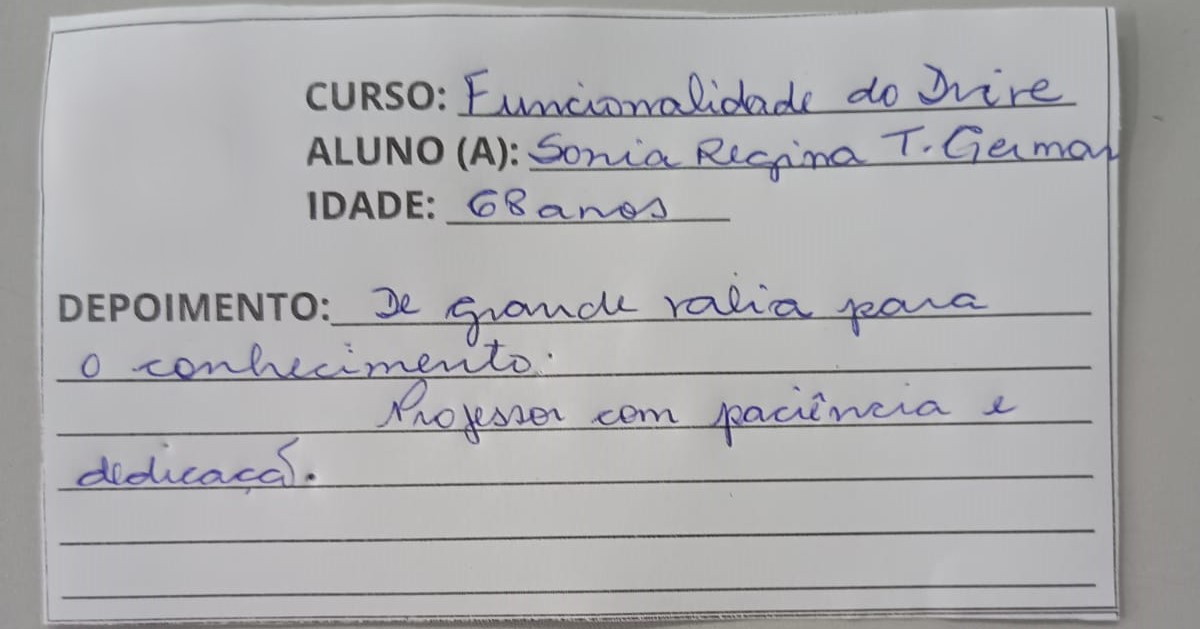 CURSO: Funcionalidade do Drive
ALUNO (A): Sonia Regina T. German
IDADE: 68 anos
DEPOIMENTO: De grande valia para
o conhecimento.
Professor com paciência e
dedicação.